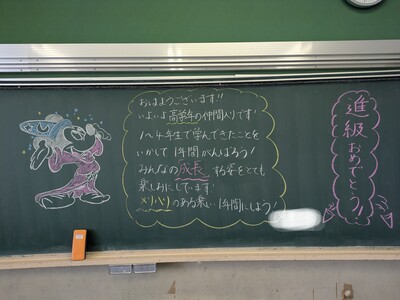 おはようございます!!
いよいよ高学年の仲間入りです!
1〜4年生で学んできたことを
いかして1年間がんばろう!
みんなの成長する姿をとても
楽しみにしています!
メリハリのある楽しい1年間にしよう!
進級おめでとう!!